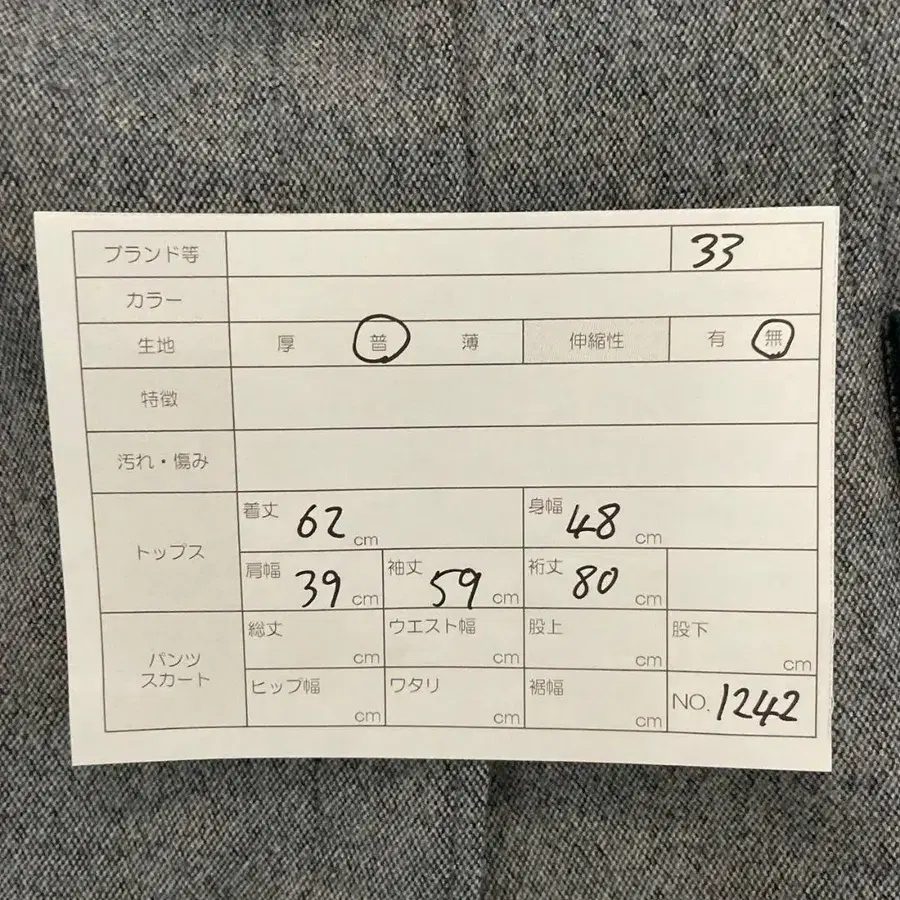 ブランド等 33
カラー
生地 厚 普 薄 伸縮性 有 無
特徴
汚れ・傷み
トップス
着丈 62 cm 身幅 48 cm
肩幅 39 cm 袖丈 59 cm 裄丈 80 cm
パンツ
スカート
総丈 cm ウエスト幅 cm 股上 cm 股下 cm
ヒップ幅 cm ワタリ cm 裾幅 cm NO. 1242